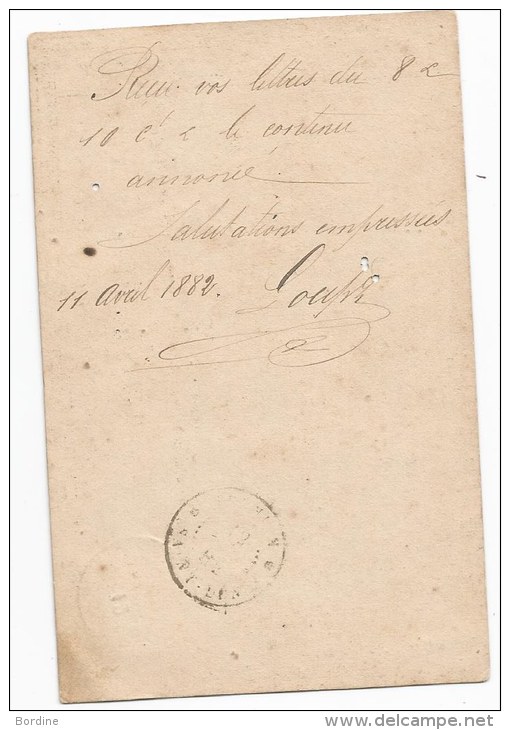 Reçu vos lettres du 8 &
10 ct & le contenu
annoncé.
Salutations empressées
11 avril 1882.
Bordine
www.delcampe.net